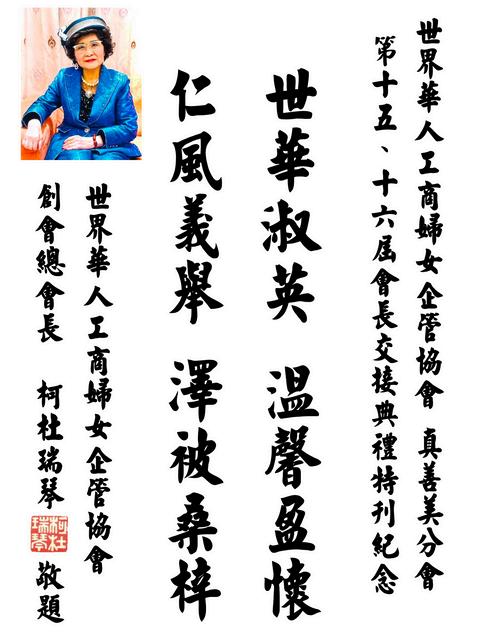 世界華人工商婦女企管協會 真善美分會
第十五、十六屆會長交接典禮特刊紀念
世華淑英 溫馨盈懷
仁風義舉 澤被桑梓
世界華人工商婦女企管協會
創會總會長 柯杜瑞琴 敬題
柯杜
瑞琴